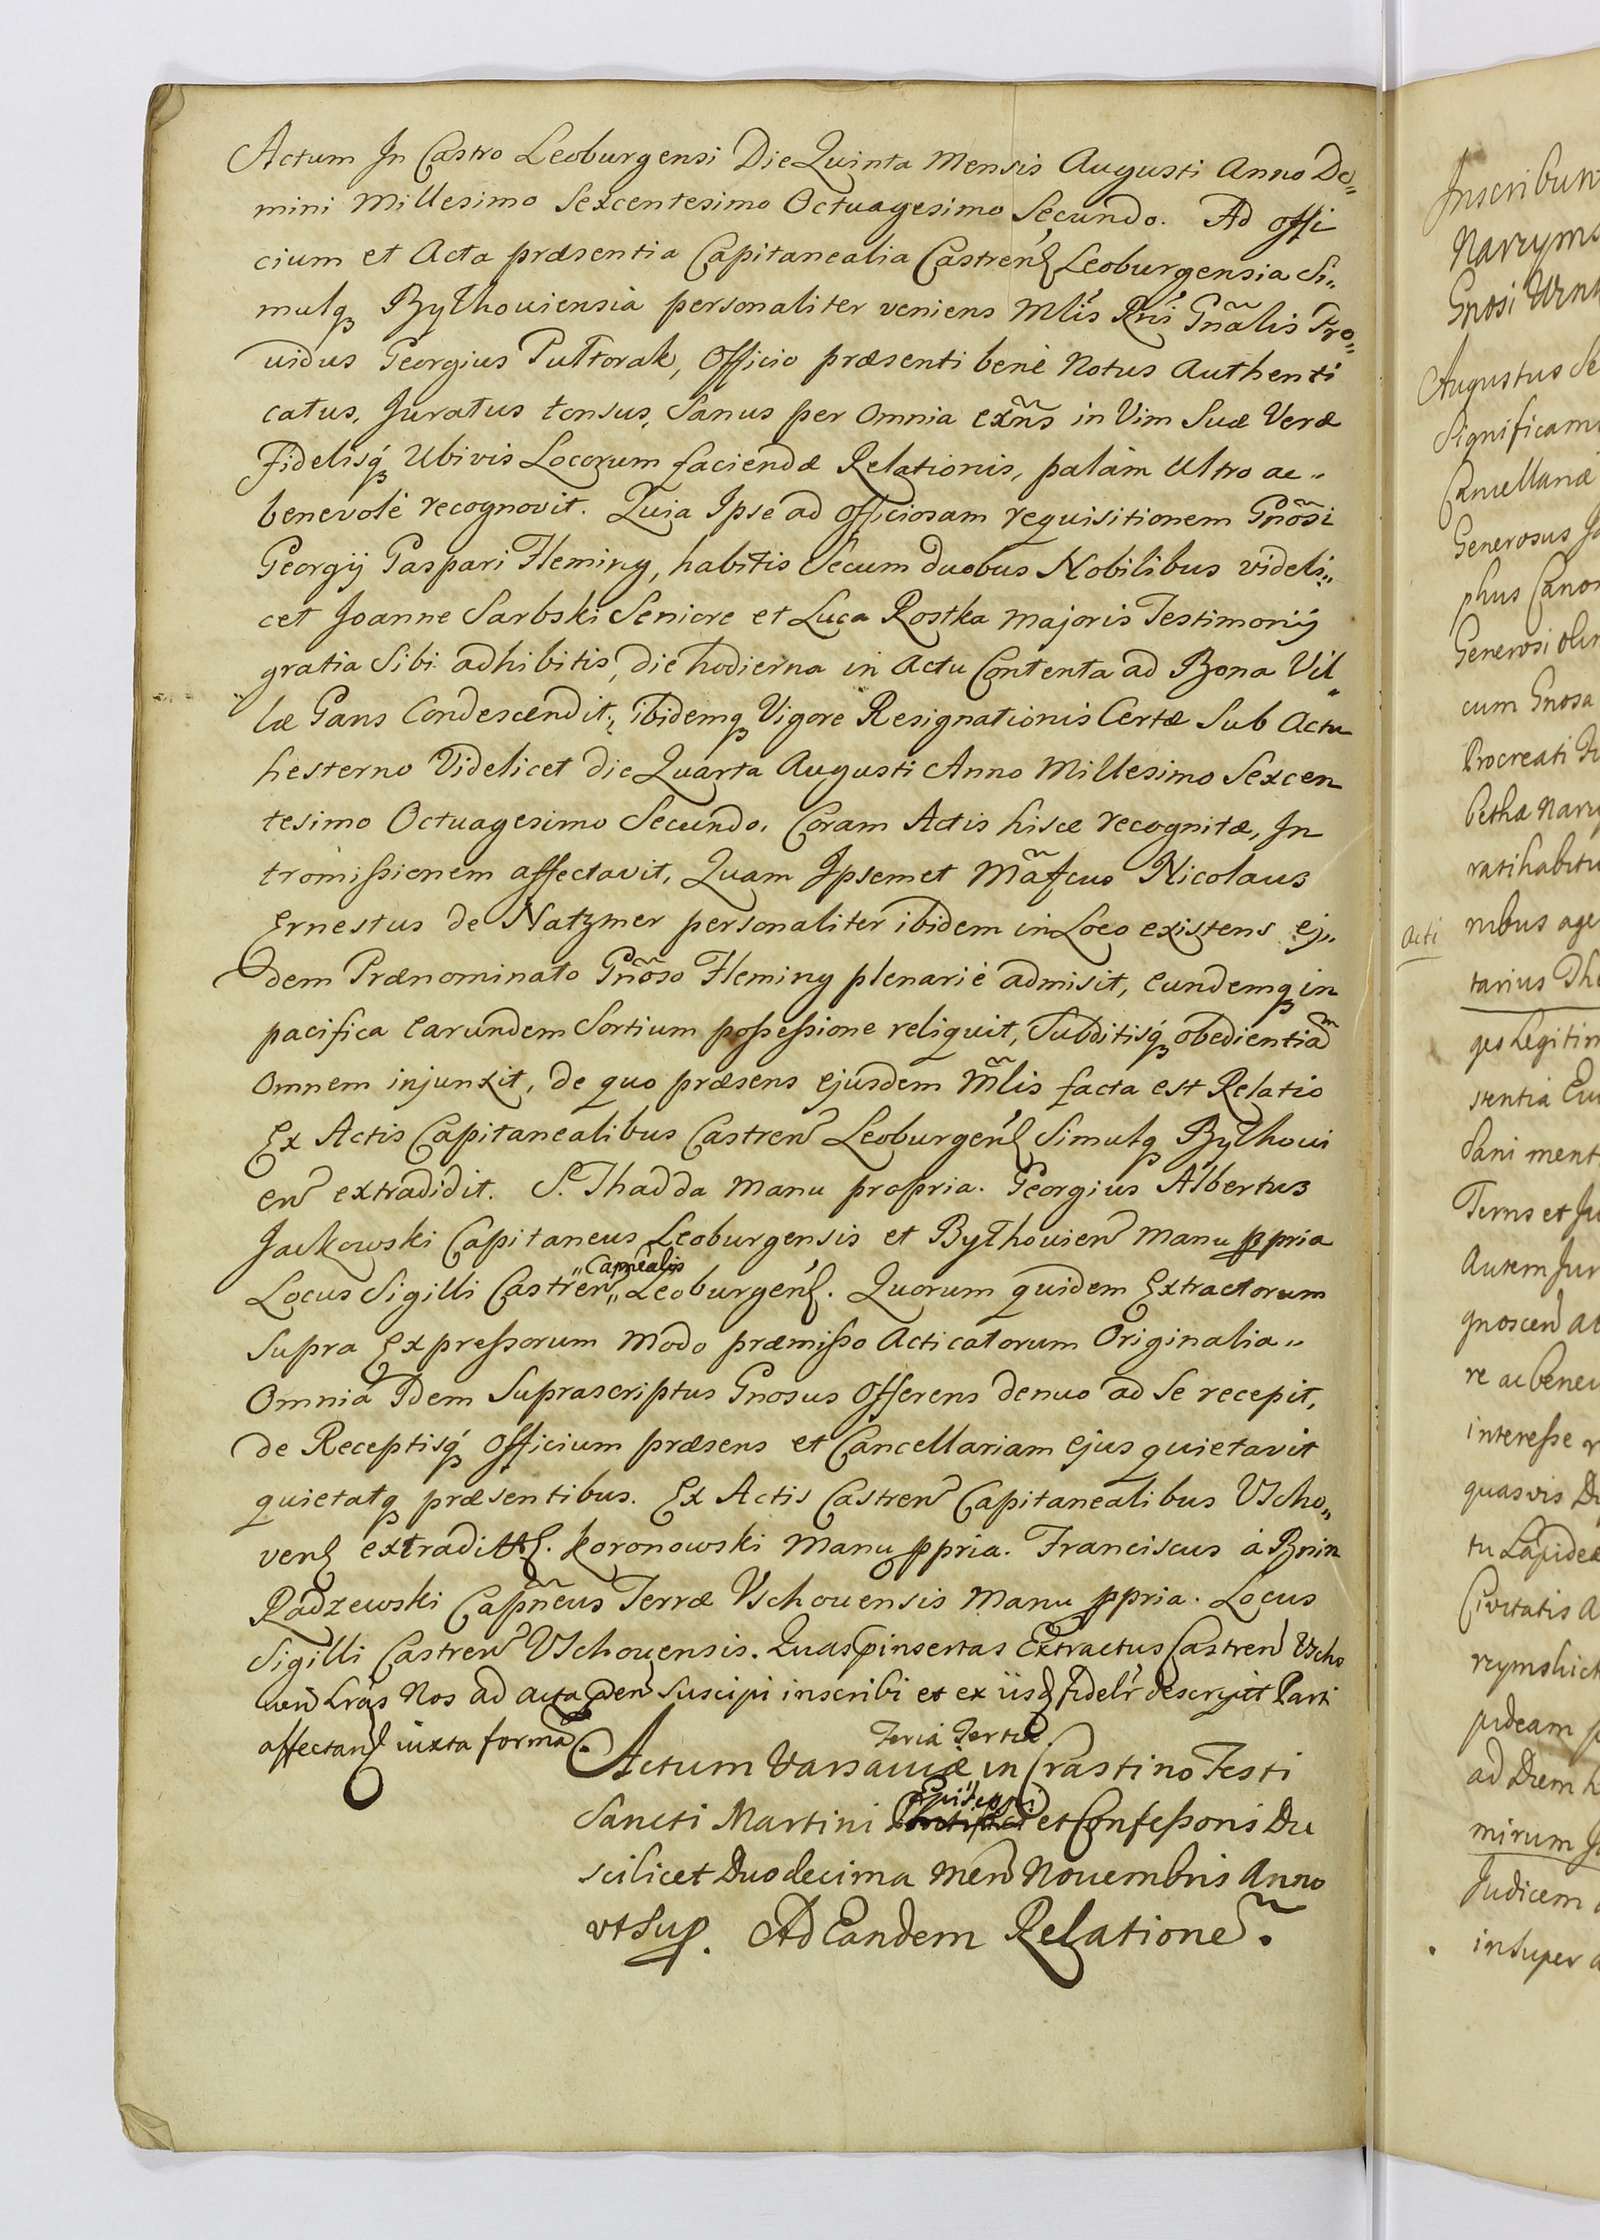 Actum In Castro Leoburgensi Die Quinta Mensis Augusti Anno Do„
mini Millesimo Sexcentesimo Octuagesimo Secundo. Ad offi
cium et Acta præsentia Capitanealia Castren Leoburgensia Si„
mulq Bythouiensia personaliter veniens Mlis Rni Gnãlis Pro„
uidus Georgius Puttorak, Officio præsenti benè Notus Authenti
catus, Juratus tonsus, Sanus per Omnia exñs in Vim Suæ Veræ
Fidelisq Ubivis Locorum faciendæ Relationis, palàm Ultro ac„
benevolè recognovit. Quia Ipse ad Officiosam requisitionem Gnõsi
Georgij Caspari Fleming, habitis Secum duobus Nobilibus videli„
cet Joanne Sarbski Seniore et Luca Rostka Majoris Testimonij
gratia Sibi adhibitis, die hodierna in Actu Contenta ad Bona Vil„
læ Gans Condescendit, ibidemq Vigore Resignationis Certæ Sub Actu
hesterno Videlicet die Quarta Augusti Anno Millesimo Sexcen
tesimo Octuagesimo Secundo. Coram Actis hisce recognitæ, In
tromissionem affectavit, Quam Ipsemet Mãfcus Nicolaus
Ernestus de Natzmer personaliter ibidem in Loco existens ej„
dem Prænominato Gnõso Fleming plenariè admisit, eundemq in
pacifica earundem Sortium possessione reliquit, Subditisq obedientiam
Omnem injunxit, de quo præsens ejusdem Mlis facta est Relatio
Ex Actis Capitanealibus Castren Leoburgen Simulq Bythoui
en extradidit. S. Thadda Manu propria. Georgius Albertus
Jackowski Capitaneus Leoburgensis et Bythouien Manu ppria
„Capnealis
Locus Sigilli Castren„ Leoburgen. Quorum quidem Extractorum
Supra Expressorum Modo præmisso Acticatorum Originalia„
Omnia Idem Suprascriptus Gnosus Offerens denuo ad Se recepit,
de Receptisq Officium præsens et Cancellariam ejus quietavit
quietatq præsentibus. Ex Actis Castren Capitanealibus Vscho„
ven extradit. Koronowski Manu ppria. Franciscus à Bnin
Radzewski Capñeus Terræ Vschouensis Manu ppria. Locus
Sigilli Castren Vschouensis. Quas pinsertas Extractus Castren Vscho
ven Lras Nos ad acta pen Suscipi inscribi et ex iisd fidelr descrypt Parti
affectan iuxta formã.
Feria Tertia
Actum Varsauiæ in Crastino Festi
Episcopi
Sancti Martini et Confessoris Die
scilicet Duodecima men Nouembris Anno
vt Sup. Ad Eandem Relationem.
Inscribun
Narzyms
Gnosi
Augustus Se
Significam
Cancellariæ
Generosus Jo
phus Canon
Generosi olim
cum Gnosa
Procreati
betha Narz
ratihabitu
nibus age
acti
tarius The
ges Legitim
stentia
sani ment
Terris et Ju
Autem Jur
gnoscen ac
re ac benev
interesse
quasvis
tu Lapideæ
Civitatis A
rzymskich
pideam
ad Diem h
mirum
Judicem
insuper a